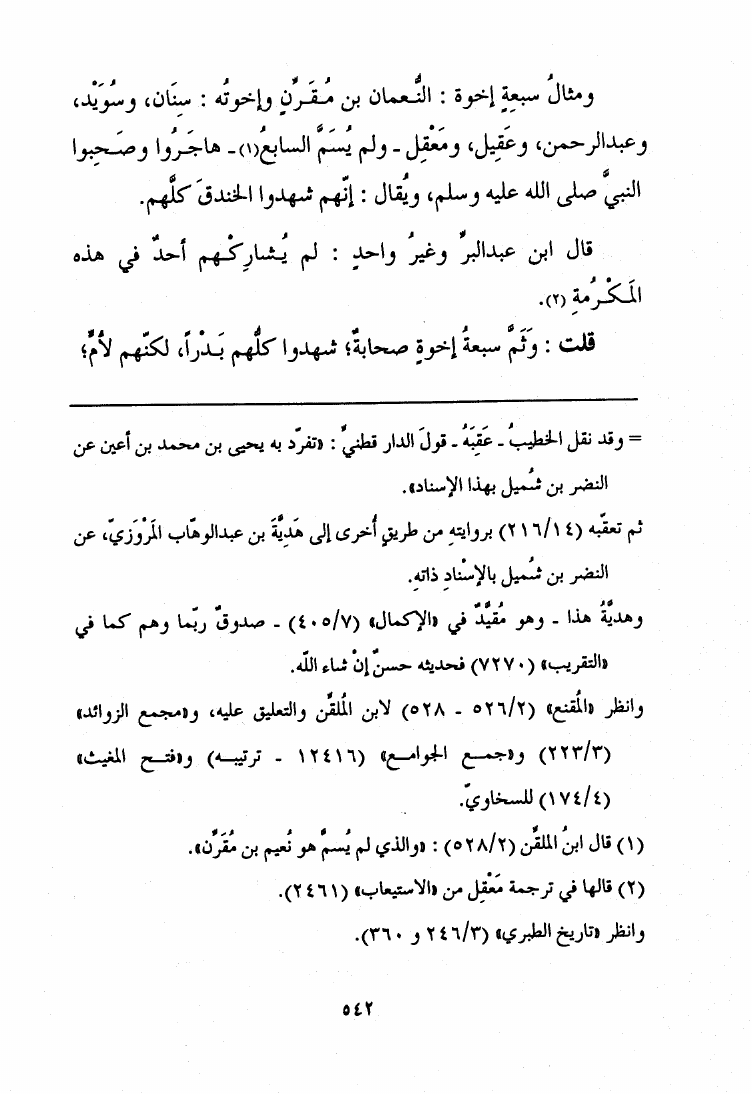 ومثالُ سبعةِ إخوة : النُّعمان بن مُقَرِّنٍ وإخوتُه : سِنَان، وسُوَيْد،
وعبدالرحمن، وعَقِيل، ومَعْقِل ـ ولم يُسَمَّ السابعُ(١) ـ هاجَرُوا وصَحِبوا
النبيَّ صلى الله عليه وسلم، ويُقال : إنّهم شهدوا الخندقَ كلَّهم.
قال ابن عبدالبرِّ وغيرُ واحدٍ : لم يُشارِكْهم أحدٌ في هذه
المَكْرُمةِ (٢).
قلت : وَثَمَّ سبعةُ إخوةٍ صحابةٌ؛ شهدوا كلُّهم بَدْراً، لكنّهم لأمٍّ؛
= وقد نقل الخطيبُ ـ عَقِبَهُ ـ قولَ الدار قطنيِّ : «تفرّد به يحيى بن محمد بن أعين عن
النضر بن شُميل بهذا الإسناد».
ثم تعقّبه (٢١٦/١٤) بروايتهِ من طريقٍ أُخرى إلى هَدِيَّةَ بن عبدالوهّاب المَرْوَزيّ، عن
النضر بن شُميل بالإسْنادِ ذاتهِ.
وهديَّةُ هذا ـ وهو مُقيَّدٌ في «الإكمال» (٤٠٥/٧) ـ صدوقٌ ربّما وهم كما في
«التقريب» (٧٢٧٠) فحديثه حسنٌ إنْ شاء اللّه.
وانظر «المُقنع» (٥٢٦/٢ ـ ٥٢٨) لابن المُلقِّن والتعليق عليه، و«مجمع الزوائد»
(٢٢٣/٣) و«جمع الجوامع» (١٢٤١٦ ـ ترتيبه) و«فتح المغيث»
(١٧٤/٤) للسخاويّ.
(١) قال ابنُ الملقِّن (٥٢٨/٢) : «والذي لم يُسمَّ هو نُعيم بن مُقَرِّن».
(٢) قالها في ترجمة مَعْقِل من «الاستيعاب» (٢٤٦١).
وانظر «تاريخ الطبري» (٢٤٦/٣ و ٣٦٠).
٥٤٢